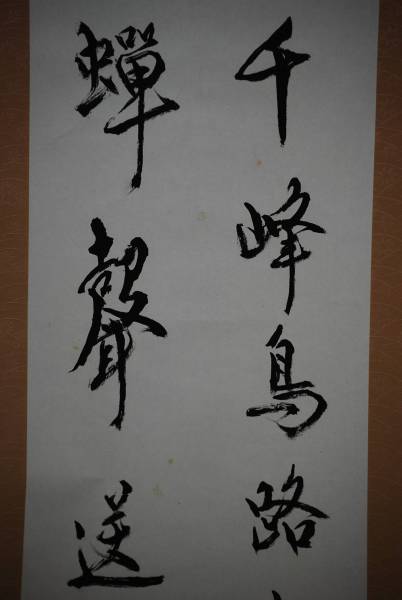 千峰鳥路
蟬聲送